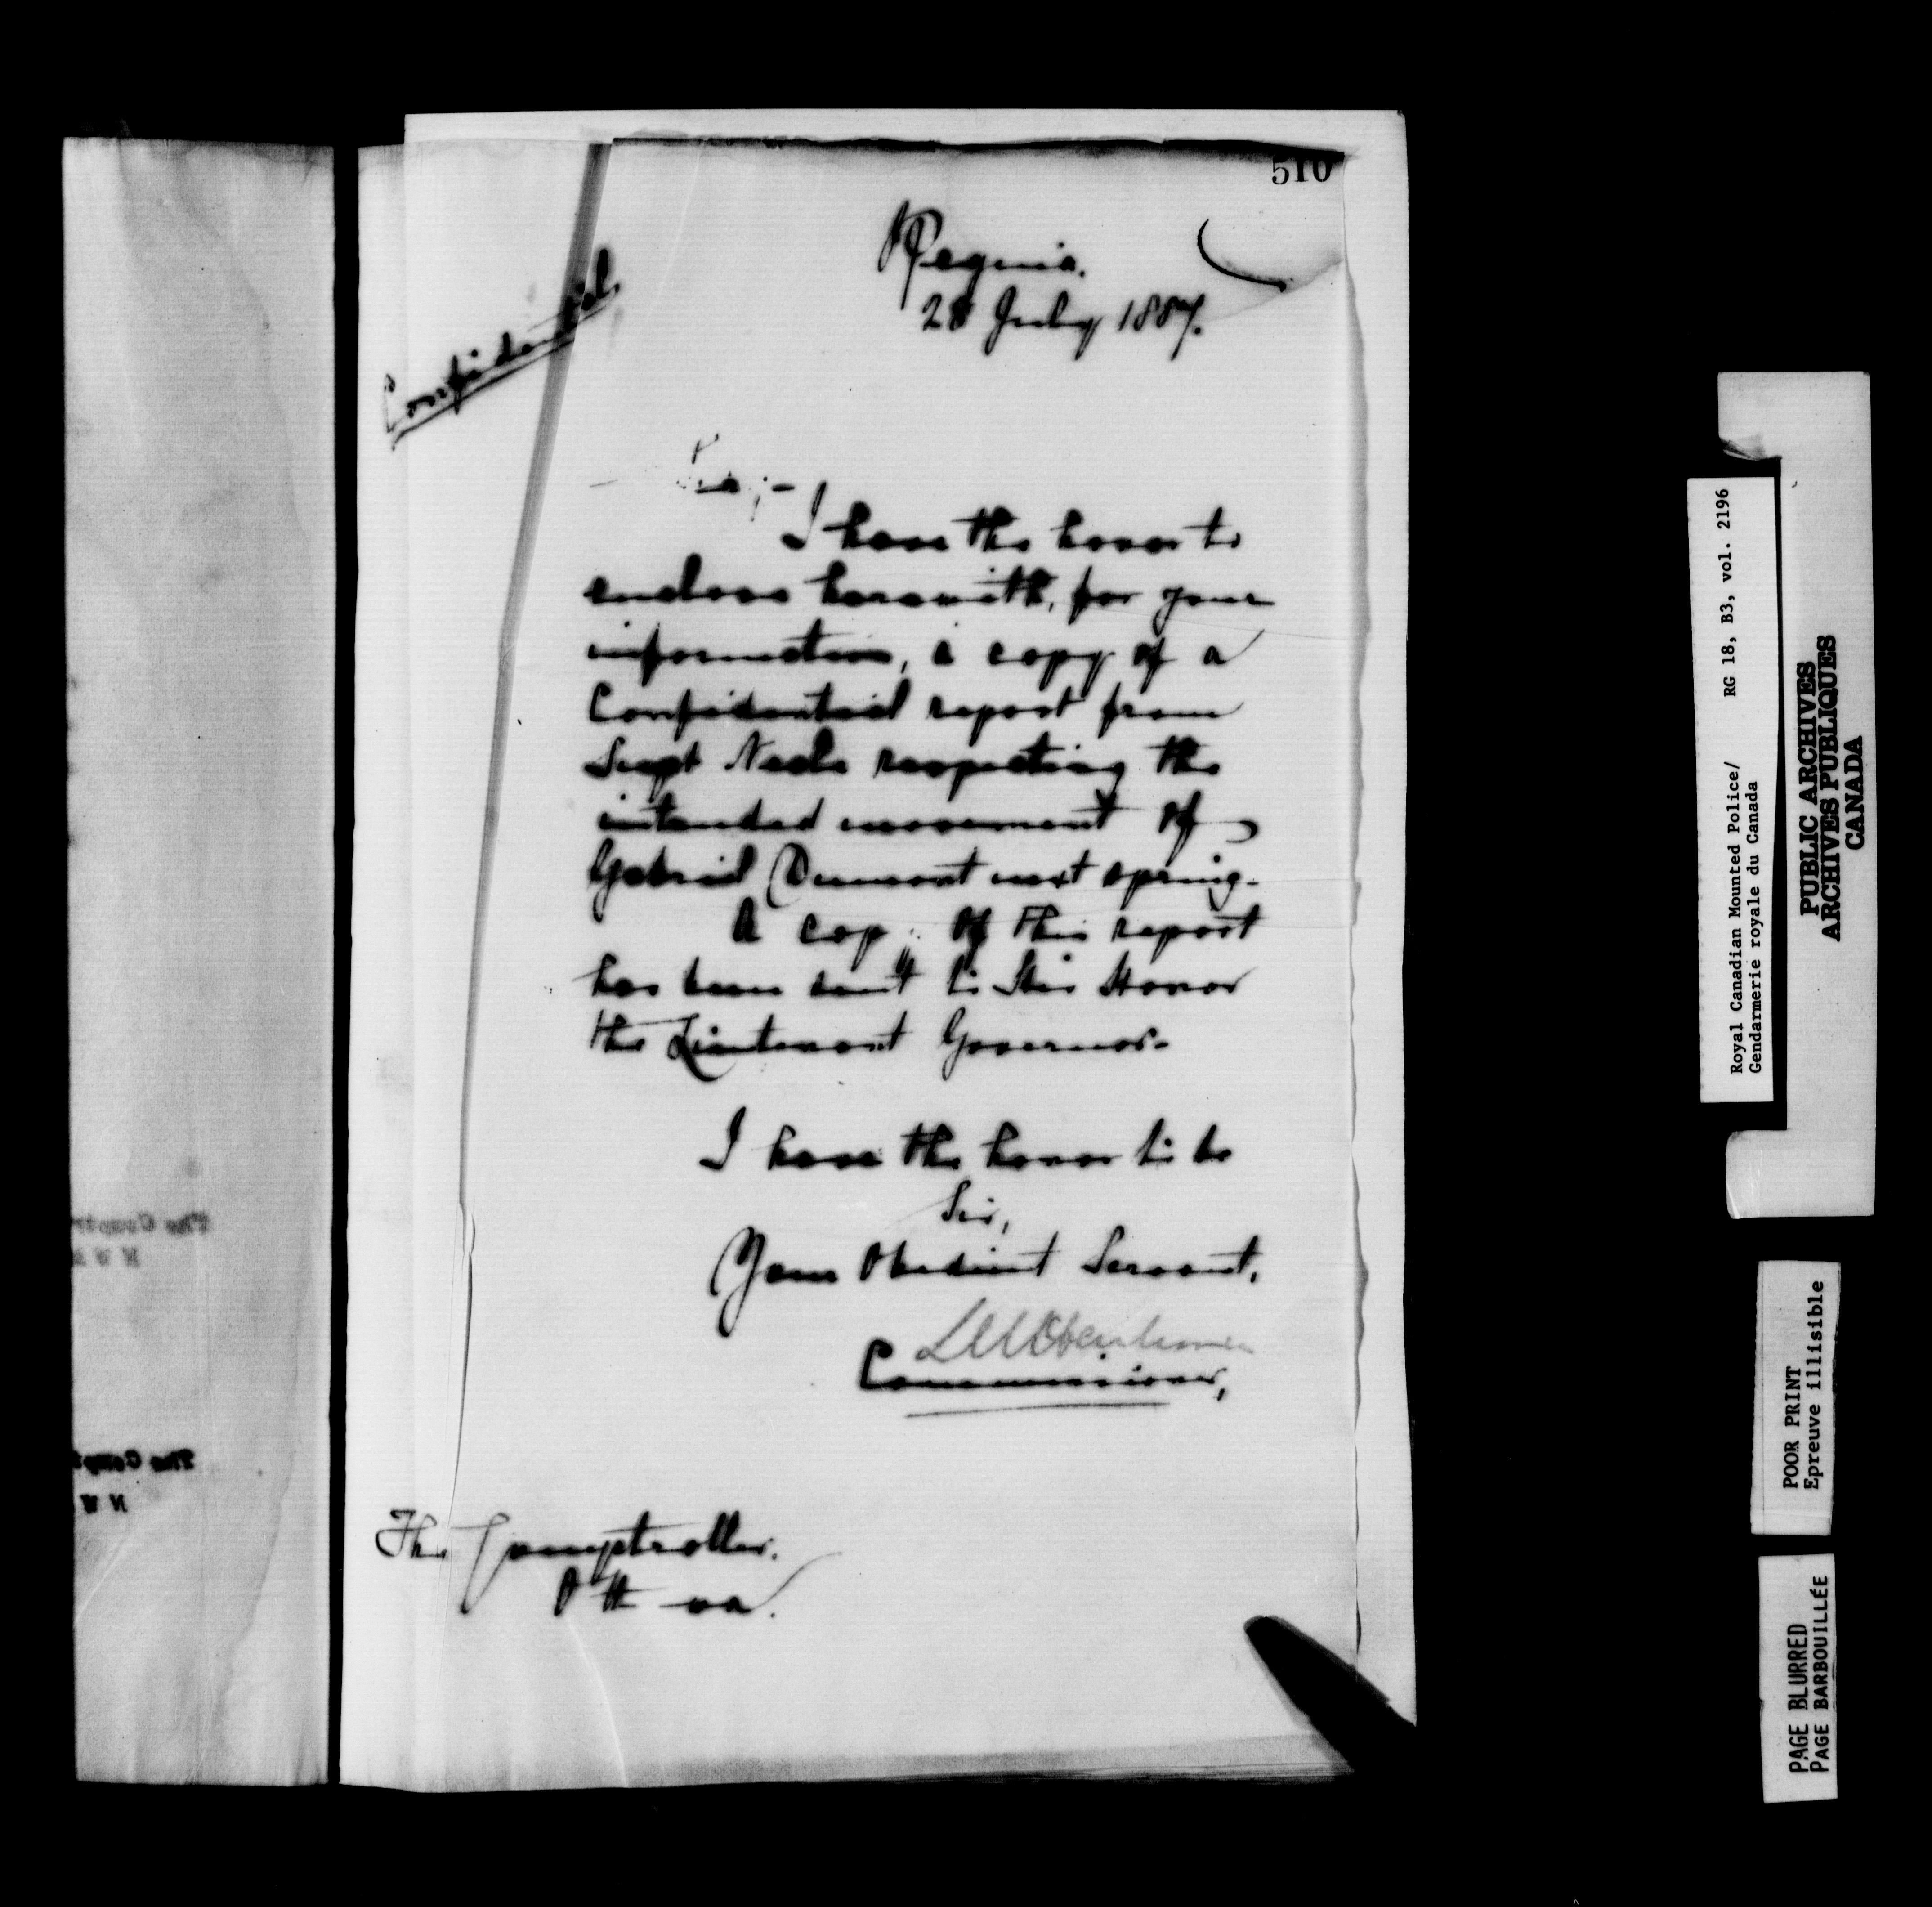 510
Regina.
28 July 1887.
Confidential
Sir;-
I have the honor to
enclose herewith, for your
information, a copy of a
Confidential report from
Supt Neale respecting the
intended movement of
Gabriel Dumont next spring.
A copy of this report
has been sent to His Honor
the Lieutenant Governor.
I have the honor to be
Sir,
Your Obedient Servant,
Commissioner,
The Comptroller.
Ottawa.
Royal Canadian Mounted Police/ RG 18, B3, vol. 2196
Gendarmerie royale du Canada
PUBLIC ARCHIVES
ARCHIVES PUBLIQUES
CANADA
POOR PRINT
Epreuve illisible
PAGE BLURRED
PAGE BARBOUILLÉE